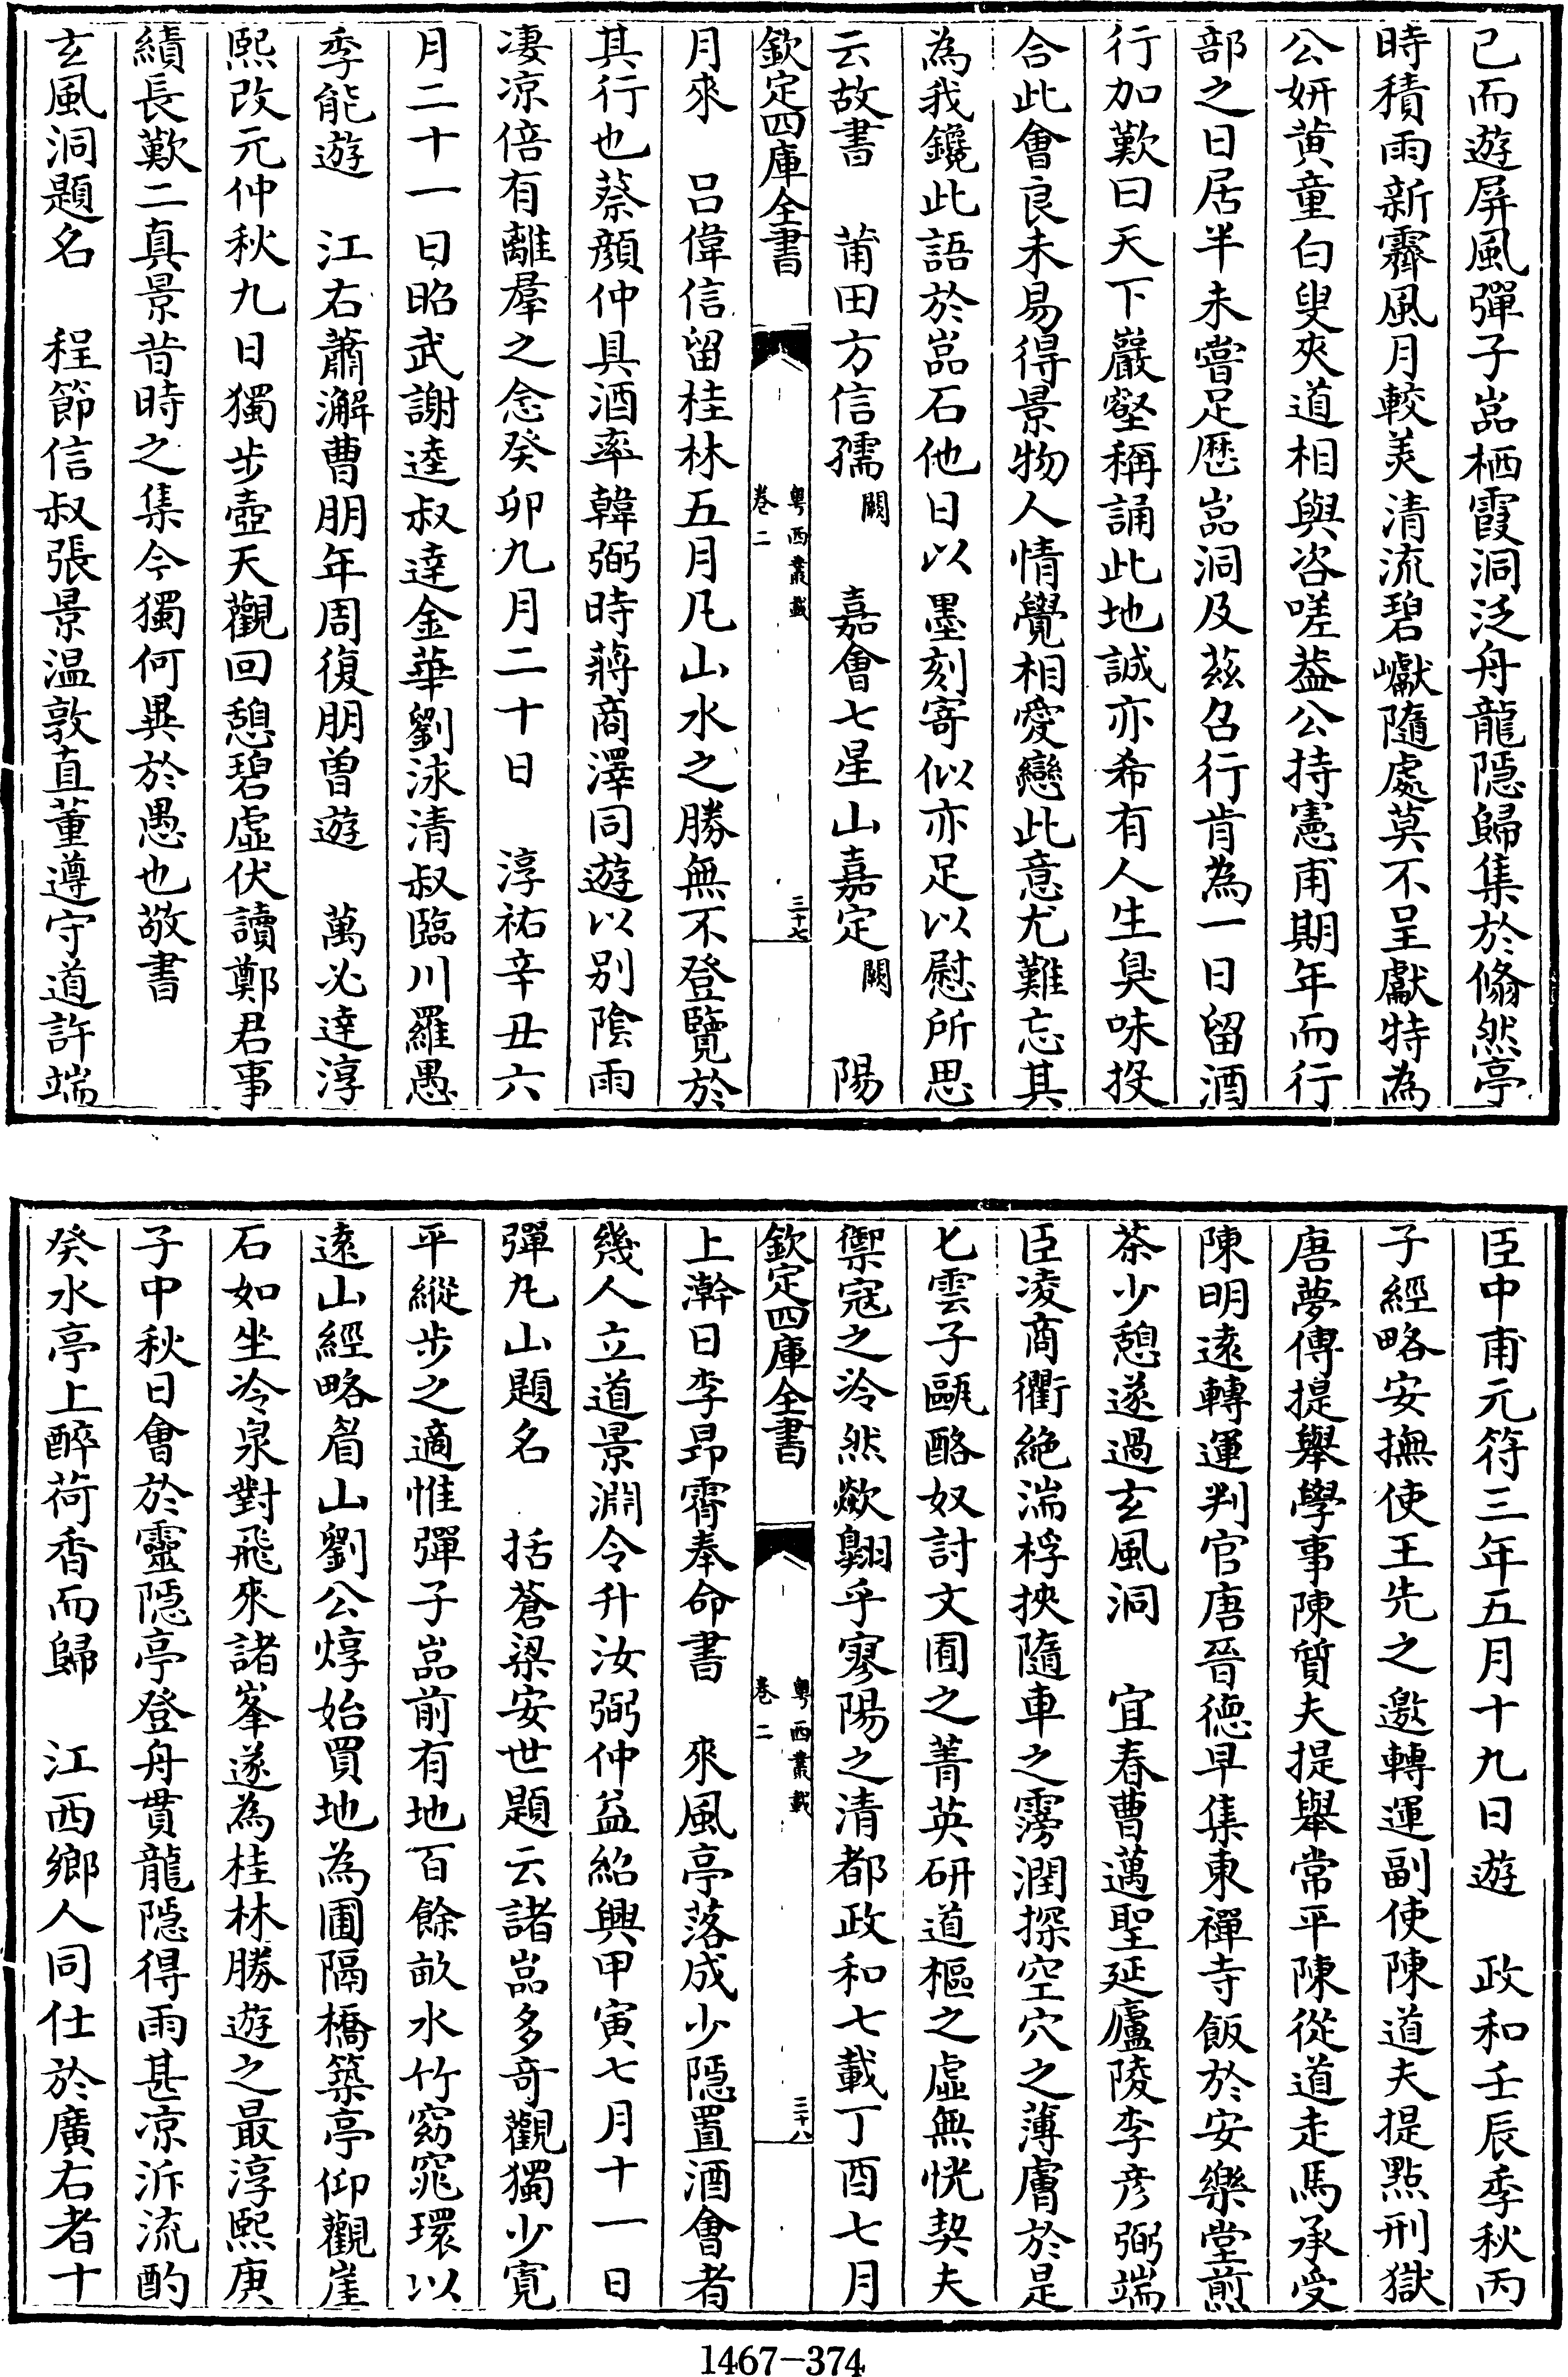 已而遊屏風彈子嵓栖霞洞泛舟龍隱歸集於翛然亭
時積雨新霽風月較美清流碧巘隨處莫不呈獻特為
公妍黄童白叟夾道相與咨嗟葢公持憲甫期年而行
部之日居半未嘗足歴嵓洞及兹召行肯為一日留酒
行加歎曰天下巖壑稱誦此地誠亦希有人生臭味投
合此會良未易得景物人情覺相愛戀此意尤難忘其
為我鑱此語於嵓石他日以墨刻寄似亦足以慰所思
云故書　莆田方信孺闕　嘉會七星山嘉定闕　陽
欽定四庫全書　粤西叢載　卷二　三十七
月來　呂偉信留桂林五月凡山水之勝無不登覽於
其行也蔡顔仲具酒率韓弼時蔣商澤同遊以别陰雨
凄凉倍有離羣之念癸卯九月二十日　淳祐辛丑六
月二十一日昭武謝逵叔達金華劉泳清叔臨川羅愚
季能遊　江右蕭澥曹朋年周復朋曽遊　萬必達淳
熙改元仲秋九日獨步壺天觀回憩碧虛伏讀鄭君事
績長歎二真景昔時之集今獨何異於愚也敬書
玄風洞題名　程節信叔張景温敦直董遵守道許端
臣中甫元符三年五月十九日遊　政和壬辰季秋丙
子經略安撫使王先之邀轉運副使陳道夫提點刑獄
唐夢傳提舉學事陳質夫提舉常平陳從道走馬承受
陳明遠轉運判官唐晉德早集東禪寺飯於安樂堂煎
茶少憩遂過玄風洞　宜春曹邁聖延廬陵李彦弼端
臣凌商衢絶湍桴挾隨車之霶潤探空穴之薄膚於是
匕雲子甌酪奴討文囿之菁英研道樞之虛無恍契夫
禦寇之泠然歘翺乎寥陽之清都政和七載丁酉七月
欽定四庫全書　粤西叢載　卷二　三十八
上澣日李昂霄奉命書　來風亭落成少隱置酒會者
幾人立道景淵令升汝弼仲益紹興甲寅七月十一日
彈丸山題名　括蒼梁安世題云諸嵓多奇觀獨少寛
平縱步之適惟彈子嵓前有地百餘畝水竹窈窕環以
遠山經略眉山劉公焞始買地為圃隔橋築亭仰觀崖
石如坐冷泉對飛來諸峯遂為桂林勝遊之最淳熙庚
子中秋日會於靈隱亭登舟貫龍隱得雨甚凉泝流酌
癸水亭上醉荷香而歸　江西鄉人同仕於廣右者十
1467-374